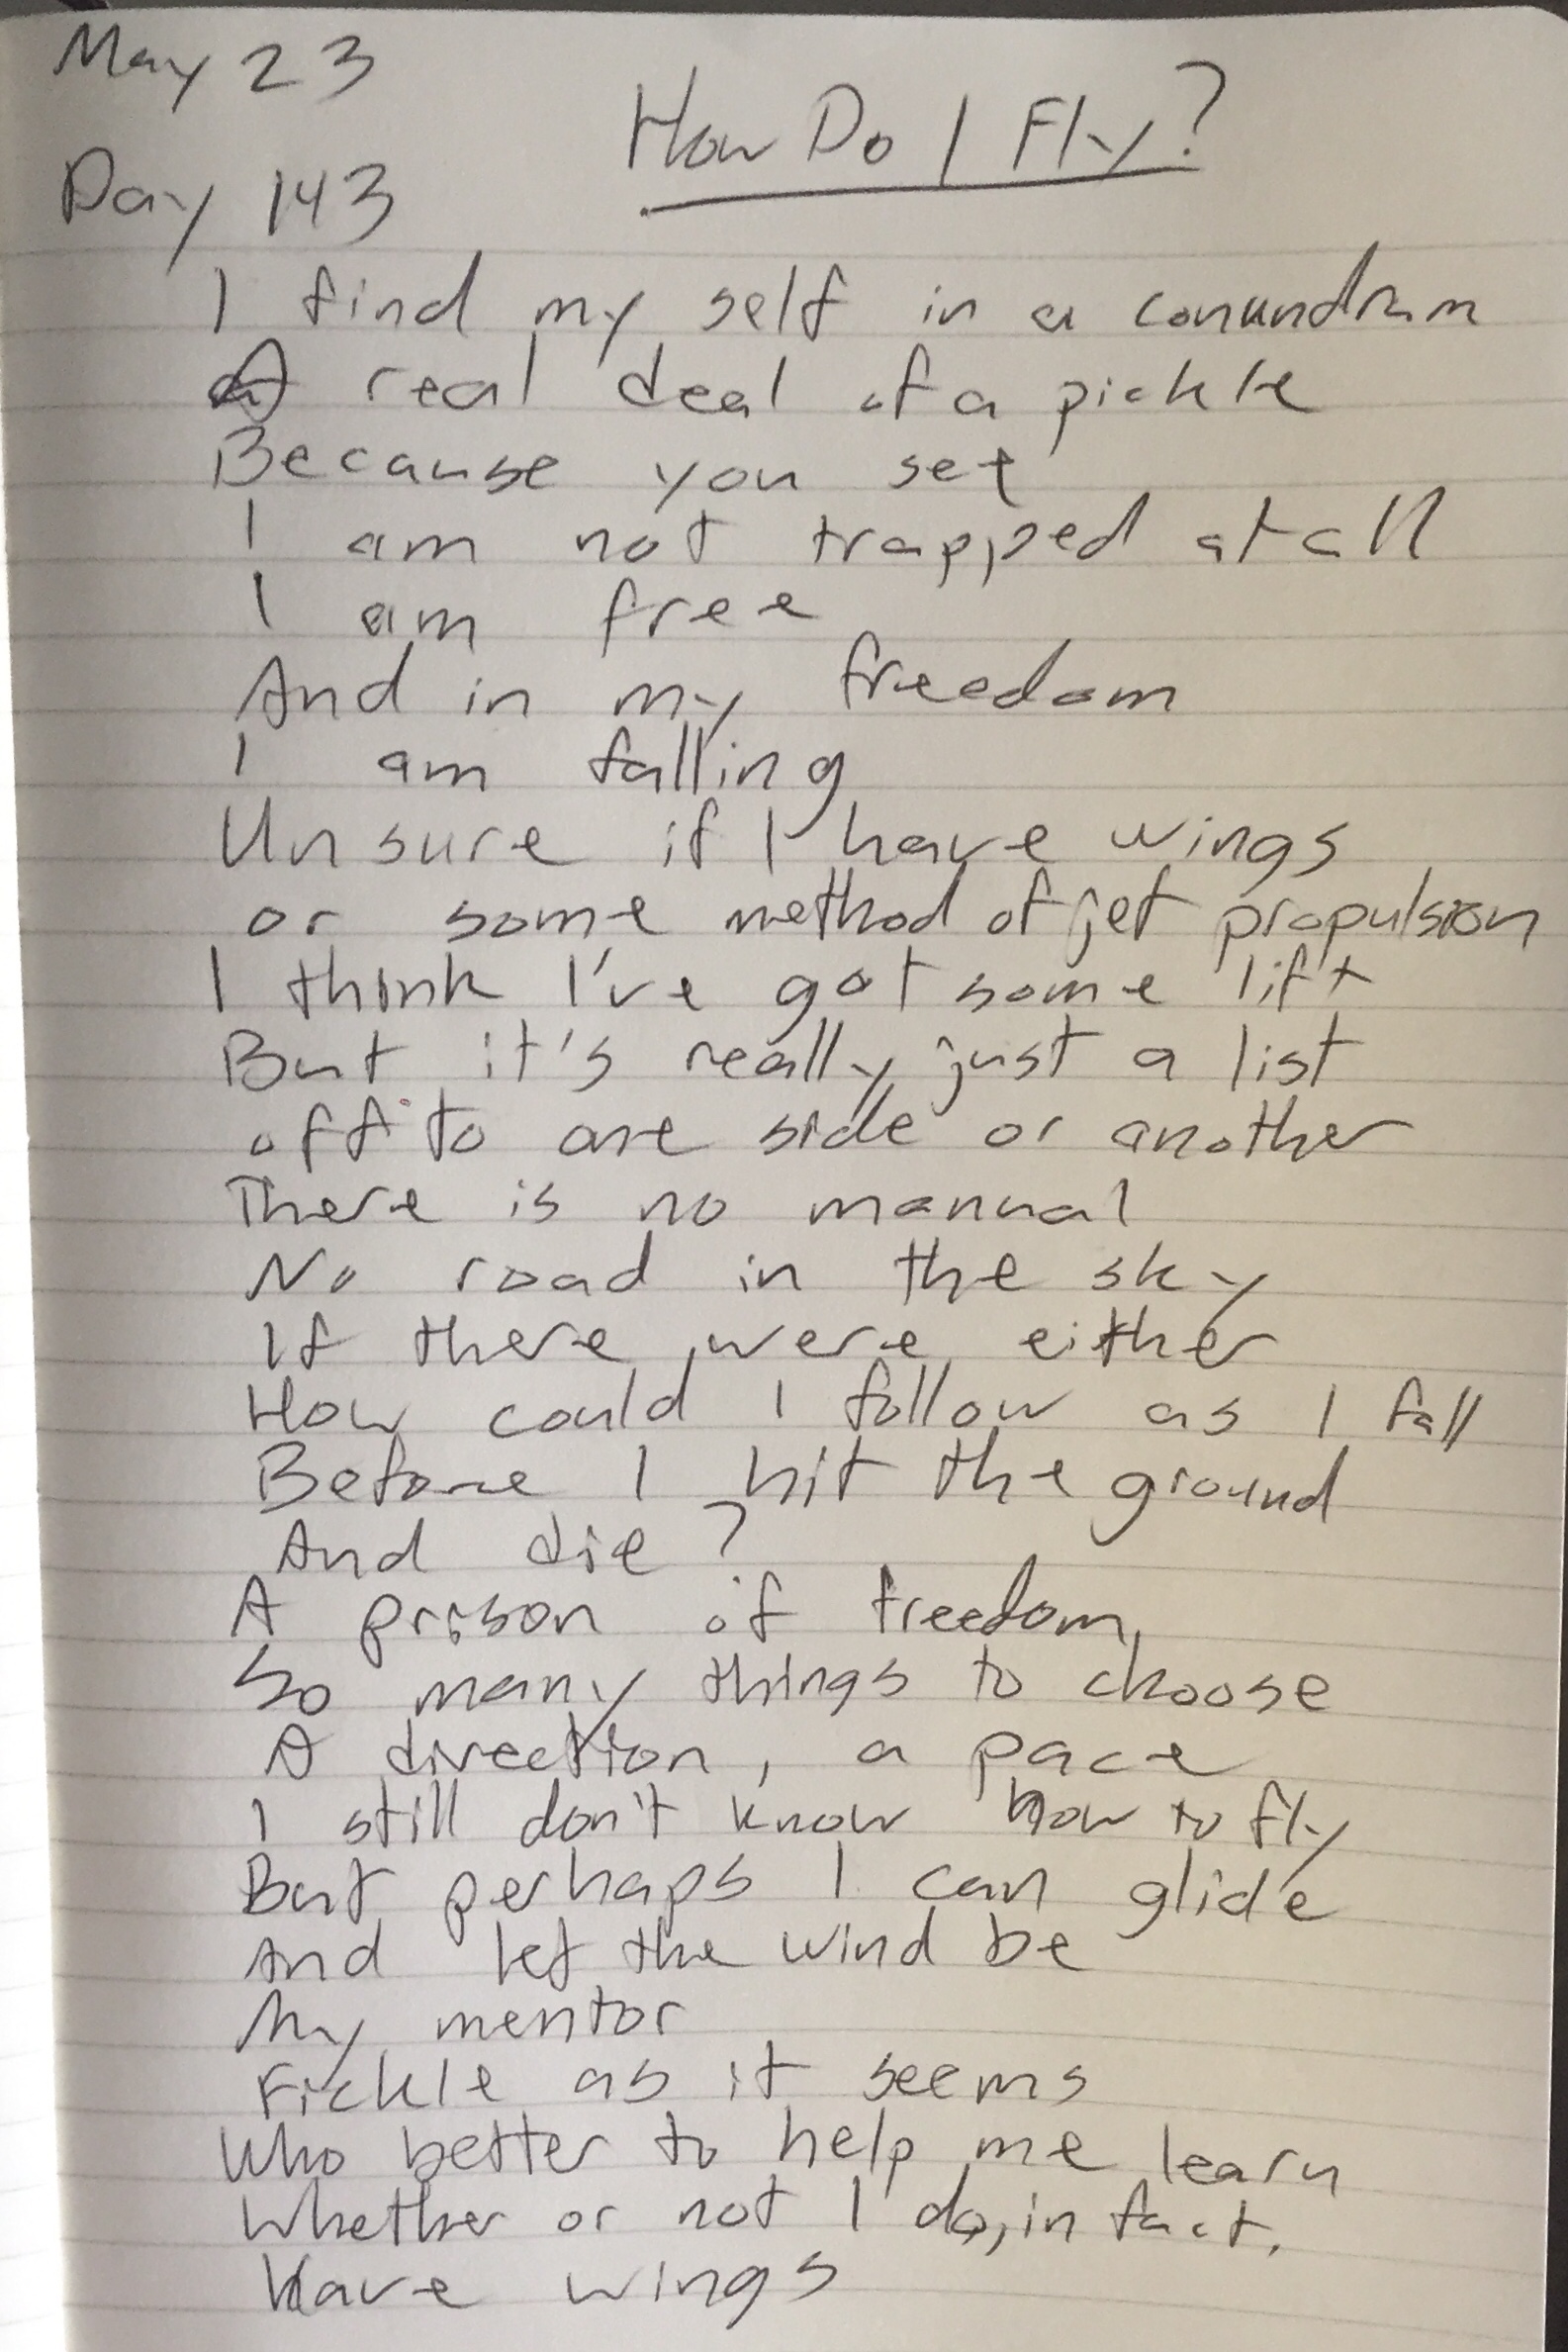 May 23
How Do I Fly?
Day 143
I find my self in a conundrum
A real deal of a pickle
Because you see
I am not trapped at all
I am free
And in my freedom
I am falling
Unsure if I have wings
or some method of jet propulsion
I think I've got some lift
But it's really just a list
off to one side or another
There is no manual
No road in the sky
If there were either
How could I follow as I fall
Before I hit the ground
And die?
A prison of freedom,
So many things to choose
A direction, a pace
I still don't know how to fly
But perhaps I can glide
And let the wind be
My mentor
Fickle as it seems
Who better to help me learn
Whether or not I do, in fact,
Have wings